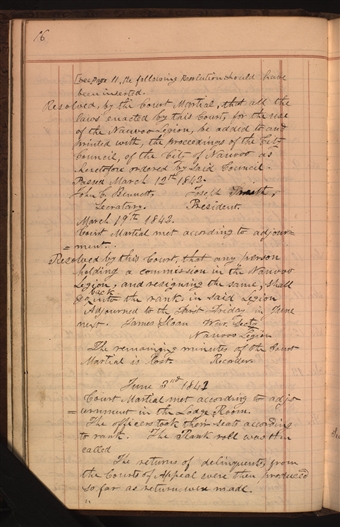 16
See Page 11, the following Resolution should have
been inserted.
Resolved, by the Court Martial, that all the
laws enacted by this Court, for the use
of the Nauvoo Legion, be added to and
printed with, the proceedings of the City
Council, of the City of Nauvoo as
heretofore ordered by said Council.
Passed March 12th 1842.
John C. Bennett, Joseph Smith,
Secretary. President.
March 19th 1842.
Court Martial met according to adjourn-
=ment.
Resolved by this Court, that any person
holding a commission in the Nauvoo
Legion, and resigning the same, shall
back
go into the ranks in said Legion
Adjourned to the first Friday in June
next. James Sloan War. Secty
Nauvoo Legion
The remaining minutes of the Court
Martial is lost. Recorder
June 3rd 1842
Court Martial met according to adjo
=urnment in the Lodge Room.
The officers took their seat according
to rank. The Rank roll was then
called
The returns of delinquents, from
the Courts of Appeal were then produced
so far as return were made.